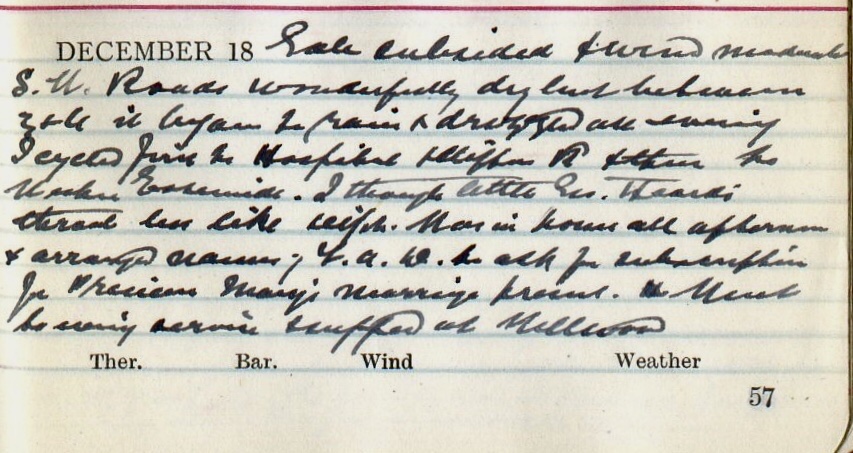 DECEMBER 18 Gale subsided & wind moderate
S.W. Roads wonderfully dry but between
3 & 4 it began to rain & drizzled all evening
I cycled first to Hospital & Clifton R & then to
. I thought little Geo. Heard's
throat less like diph. Was in house all afternoon
& arranged names of to ask for subscription
for Princess Mary's marriage present. Went
to evening service & supped at Millwood
Ther. Bar. Wind Weather
57